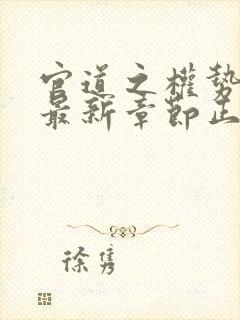 官道之權勢
最新章節正
徐隽